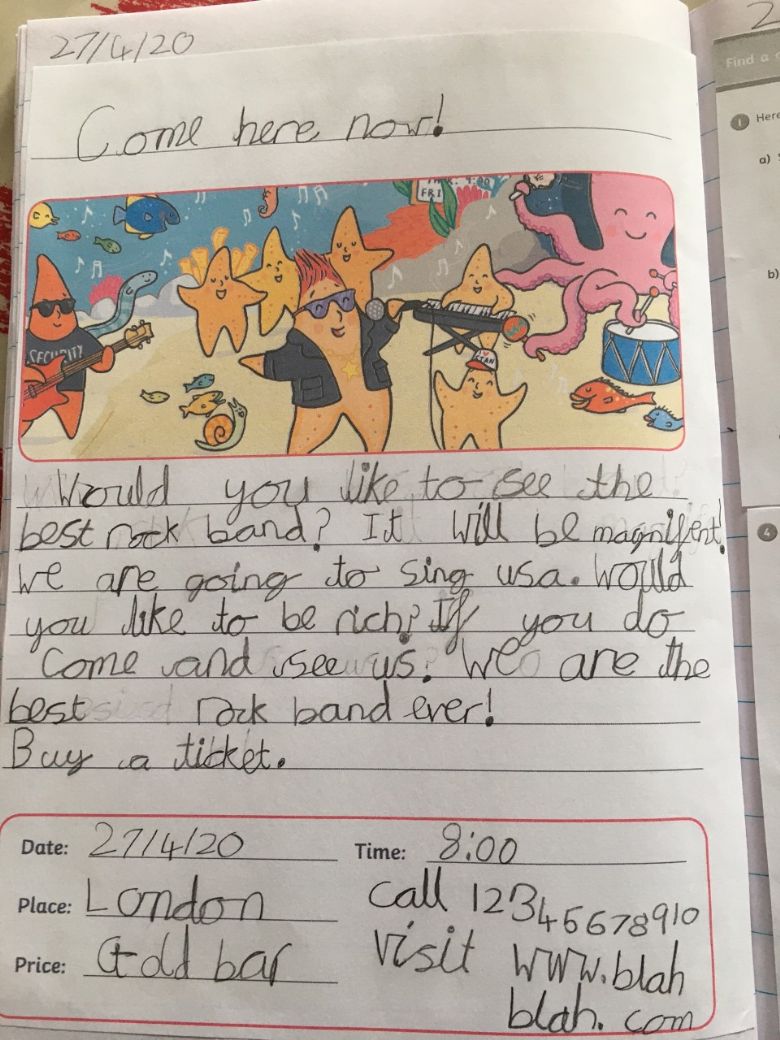 27/4/20
Come here now!
FRI
SECURITY
Would you like to see the
best rock band? It will be magnifent!
We are going to sing usa. Would
you like to be rich? If you do
Come and see us. We are the
best rock band ever!
Buy a ticket.
Date: 27/4/20
Time: 8:00
Place: London
Call 12345678910
Price: Gold bar
visit www.blah
blah.com
2
Find a
1 Here
a)
b)
4